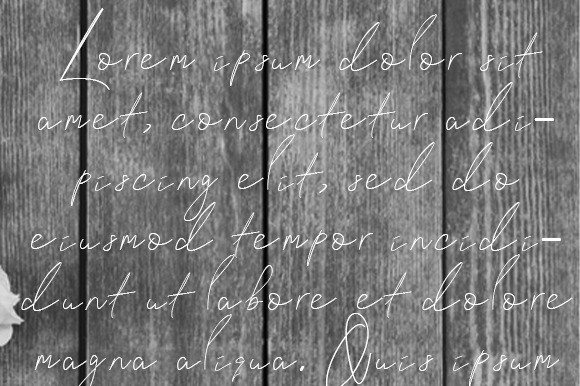 Lorem ipsum dolor sit
amet, consectetur adi-
piscing elit, sed do
eiusmod tempor incidi-
dunt ut labore et dolore
magna aliqua. Quis ipsum